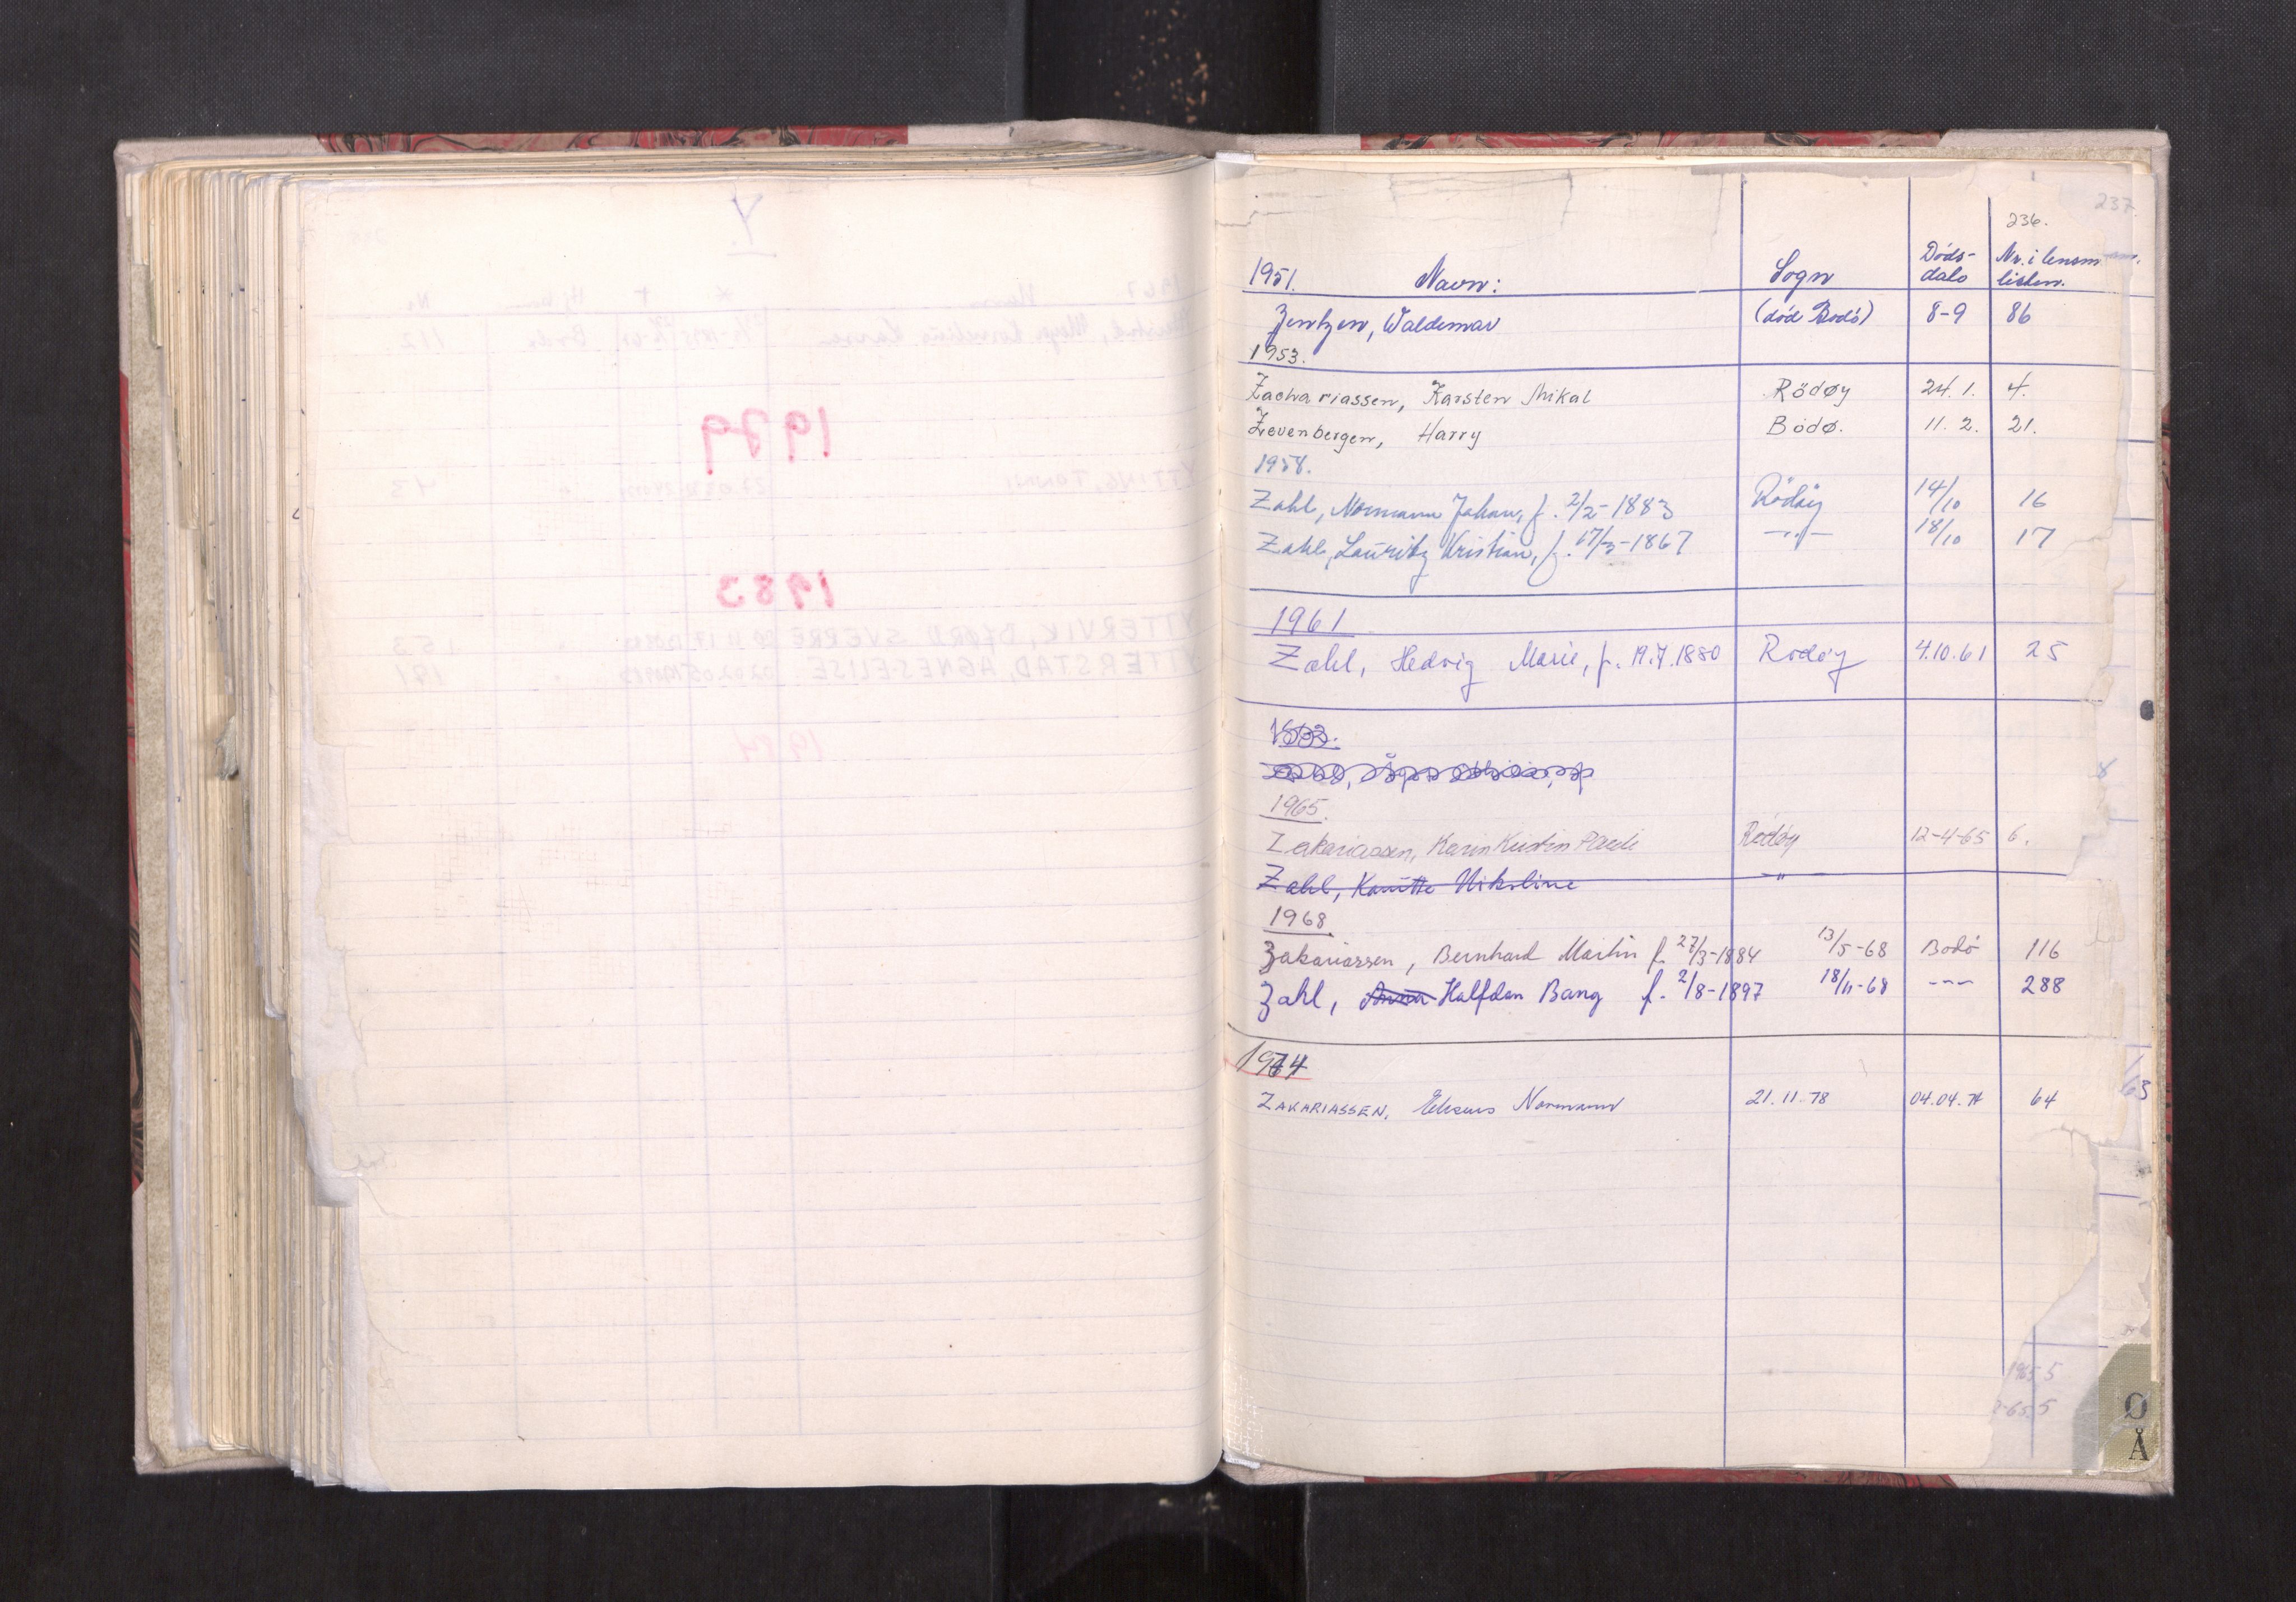 237.
236.
1951. Navn: Sogn Døds-dato Nr. i lensm. listen.
Zentzen, Waldemar (död Bodö) 8-9 86
1953.
Zachariassen, Karsten Mikal Rödøy 24.1. 4.
Zevenbergen, Harry Bödø. 11.2. 21.
1958.
Zahl, Normann Johan, f. 2/2-1883 Rödöy 14/10 16
Zahl, Lauritz Kristian, f. 17/3-1867 —"— 18/10 17
1961
Zahl, Hedvig Marie, f. 19.7.1880 Rødøy 4.10.61 25
1965.
Zakariassen, Karin Kristin Rødøy 12-4-65 6.
Zahl, Nikoline "
1968.
Zakariassen, Bernhard Martin f. 27/3-1884 13/5-68 Bodö 116
Zahl, Halfdan Bang f. 2/8-1897 18/11-68 --- 288
1974
ZAKARIASSEN, Normann 21.11.78 04.04.74 64
63
1965 5
-65 5
Ø
Å
Y
1979
1983
YTTERVIK, BJØRN SVERRE 153
YTTERSTAD, AGNES-ELISE 191
1984